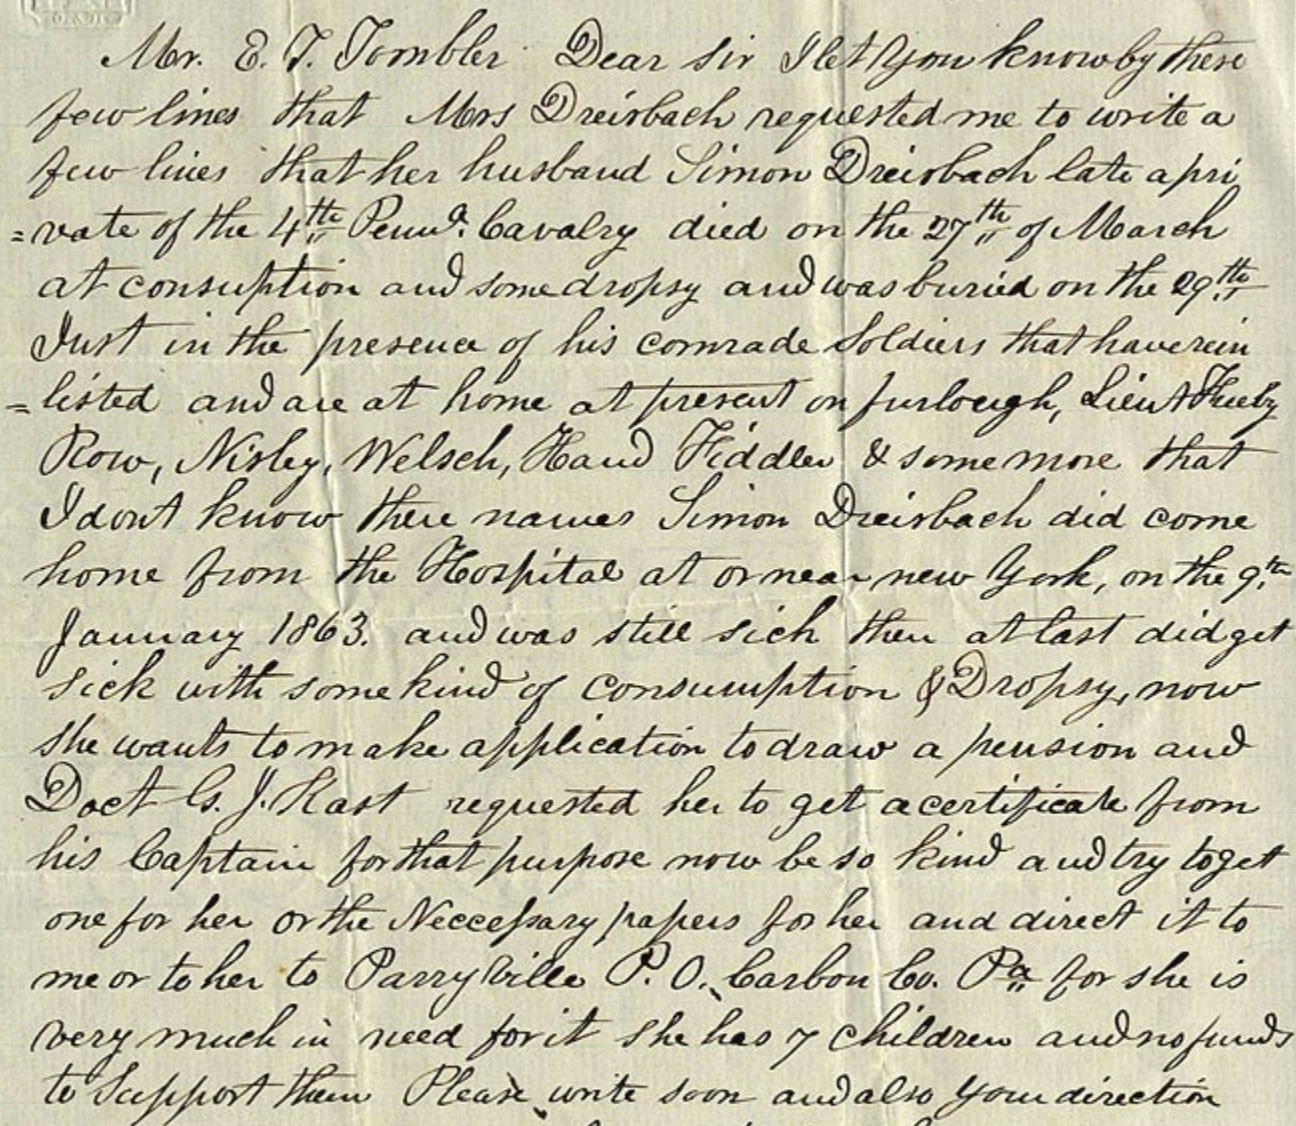 Mr. E. T. Tombler Dear sir I let you know by these
few lines that Mrs Dreisbach requested me to write a
few lines that her husband Simon Dreisbach late a pri
=vate of the 4th Penna. Cavalry died on the 27th of March
at consuption and some dropsy and was buried on the 29th
Inst in the presence of his comrade Soldiers that have rein
=listed and are at home at present on furlough, Lieut
Row, Nisley, Welsch, Hand Fiddler & some more that
I dont know there names Simon Dreisbach did come
home from the Hospital at or near new York, on the 9th
January 1863. and was still sick then at last did get
sick with some kind of consumption & Dropsy, now
she wants to make application to draw a pension and
Doct G. J. Kast requested her to get a certificate from
his Captain for that purpose now be so kind and try to get
one for her or the Neccessary papers for her and direct it to
me or to her to Parryville P. O. Carbon Co. Pa for she is
very much in need for it she has 7 children and no funds
to Support them Please write soon and also your direction